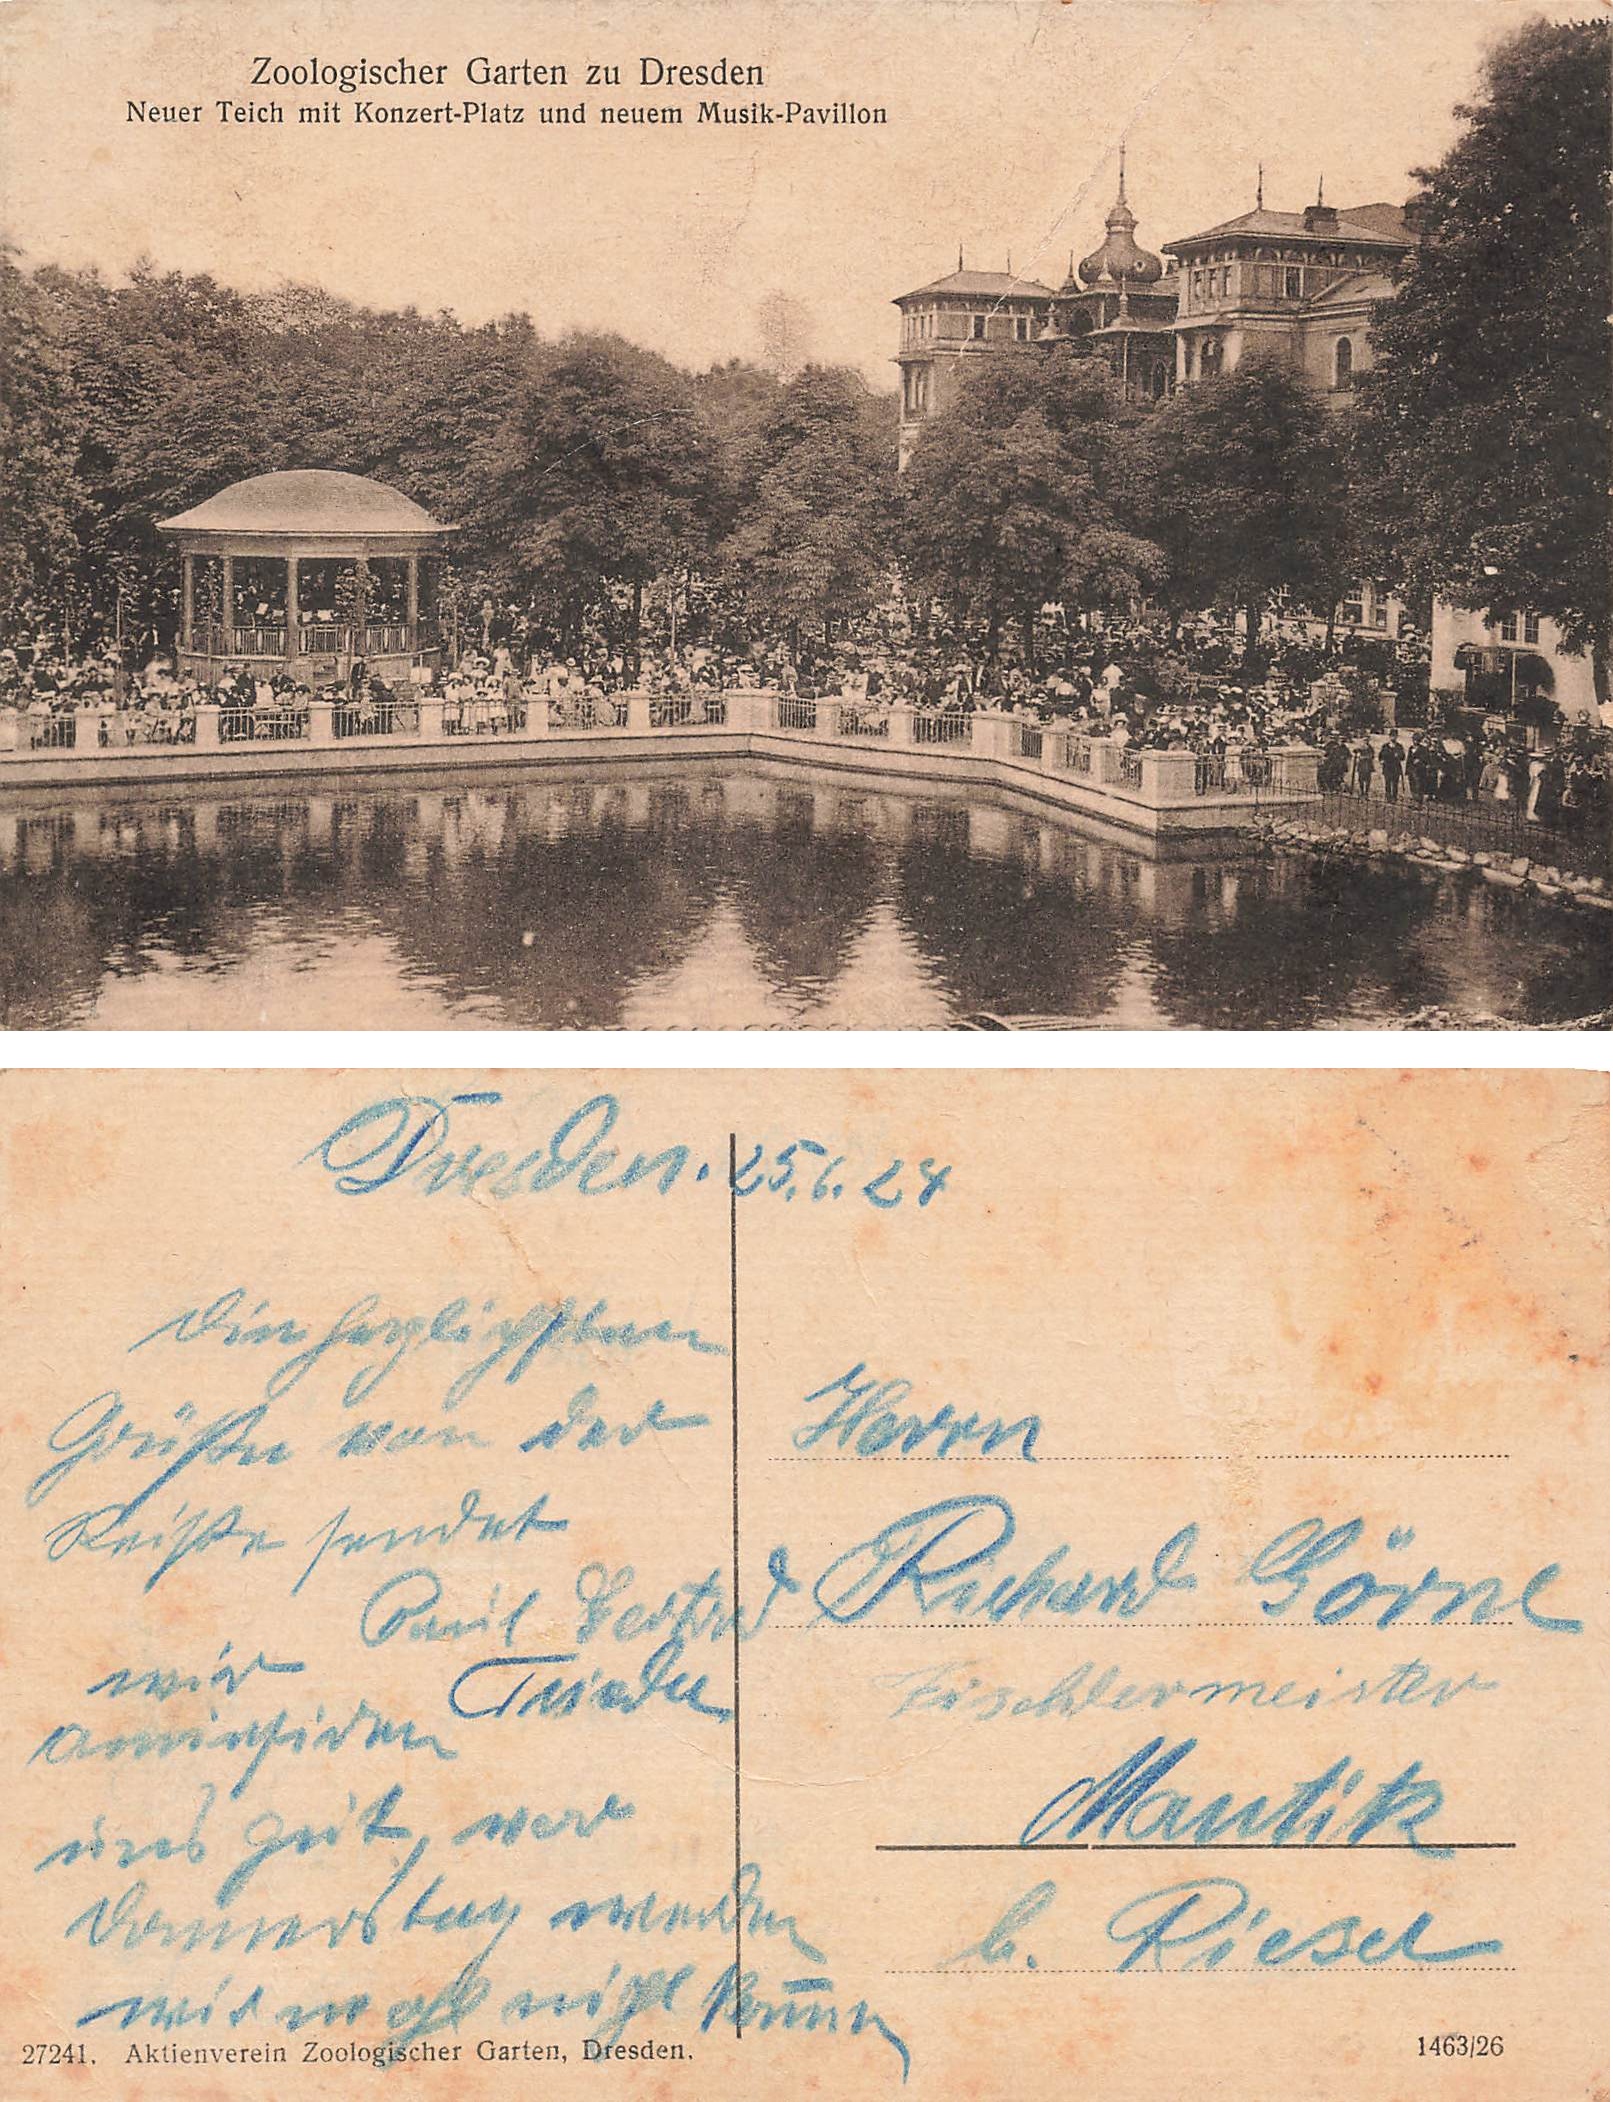 Zoologischer Garten zu Dresden
Neuer Teich mit Konzert-Platz und neuem Musik-Pavillon
Dresden. 25.6.24
Die herzlichsten
Grüße von der
Reise sendet
Paul
wir Frieda
amüsieren
uns gut, vor
Donnerstag werden
wir wohl nicht komm̅en
Herrn
Richard Görne
Tischlermeister
Mautitz
b. Riesa
27241. Aktienverein Zoologischer Garten, Dresden.
1463/26